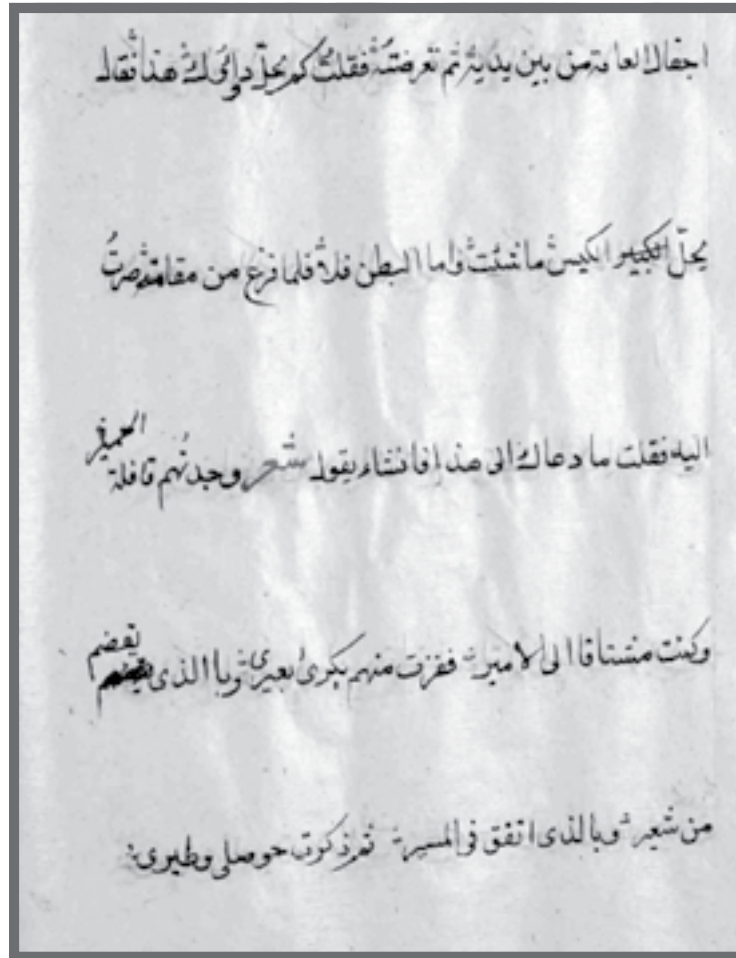 اجفال العامة من بين يديه ثم تعرضتهُ فقلتُ كم يحلّ دوائك هذا فقال
يحلّ الكيس ما شئت واما البطن فلا فلما فرغ من مقامته صرتُ
اليه فقلت ما دعاك الى هذا فانشاء يقول شعر وجدتُهم قافلة الحمير
وكنت مشتاقا الى الامير ففزت منهم بكرى بعيرى وبا الذى يقضم
من شعير وبالذى اتفق في المسير ثم ذكرت حوصلى وطيرى